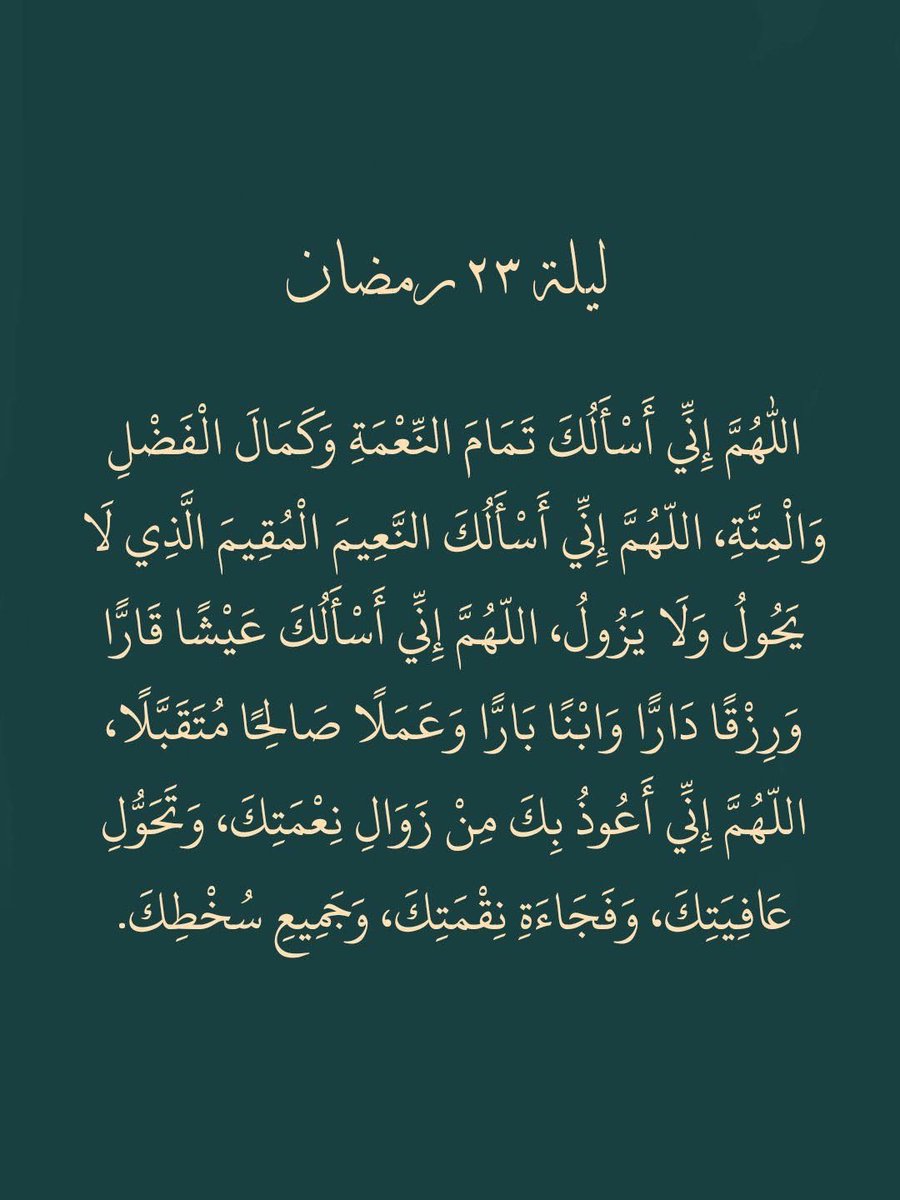 ليلة ٢٣ رمضان
اللّٰهُمَّ إِنِّي أَسْأَلُكَ تَمَامَ النِّعْمَةِ وَكَمَالَ الْفَضْلِ
وَالْمِنَّةِ، اللّهُمَّ إِنِّي أَسْأَلُكَ النَّعِيمَ الْمُقِيمَ الَّذِي لَا
يَحُولُ وَلَا يَزُولُ، اللّهُمَّ إِنِّي أَسْأَلُكَ عَيْشًا قَارًّا
وَرِزْقًا دَارًّا وَابْنًا بَارًّا وَعَمَلًا صَالِحًا مُتَقَبَّلًا،
اللّهُمَّ إِنِّي أَعُوذُ بِكَ مِنْ زَوَالِ نِعْمَتِكَ، وَتَحَوُّلِ
عَافِيَتِكَ، وَفَجَاءَةِ نِقْمَتِكَ، وَجَمِيعِ سُخْطِكَ.